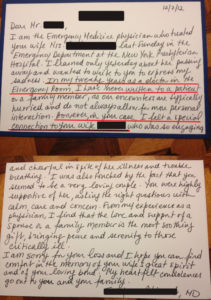 10/2/12
Dear Mr
I am the Emergency Medicine physician who treated
your wife Mrs last Sunday in the
Emergency Department at the New York Presbyterian
Hospital. I learned only yesterday about her passing
away and wanted to write to you to express my
sadness. In my twenty years as a doctor in the
Emergency Room, I have never written to a patient
or a family member, as our encounters are typically
hurried and do not always allow for more personal
interaction. However, in your case, I felt a special
connection to your wife who was so engaging
and cheerful in spite of her illness and trouble
breathing. I was also touched by the fact that you
seemed to be a very loving couple. You were highly
supportive of her, asking the right questions with
calm care and concern. From my experience as a
physician, I find that the love and support of a
spouse or a family member is the most soothing
gift, bringing peace and serenity to those
critically ill.
I am sorry for your loss and I hope you can find
comfort in the memory of your wife's great spirit
and of your loving bond. My heartfelt condolences
go out to you and your family.
MD